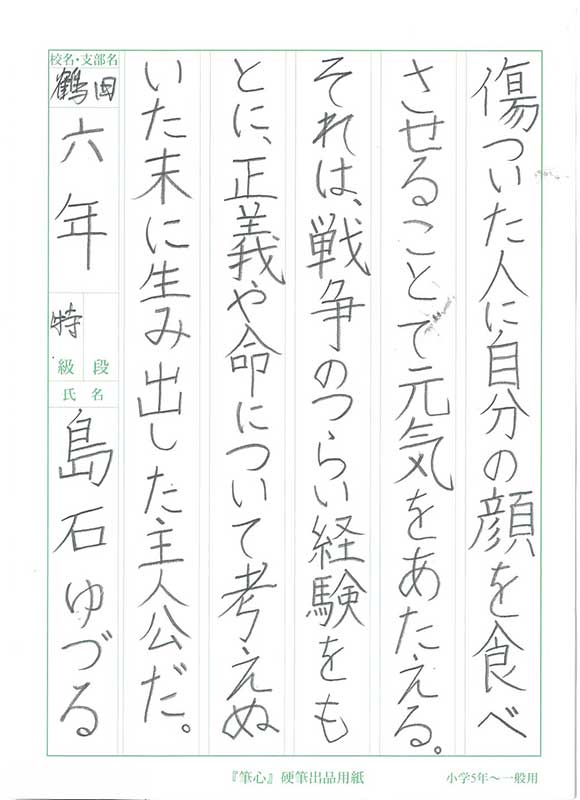 傷ついた人に自分の顔を食べ
させることで元気をあたえる。
それは、戦争のつらい経験をも
とに、正義や命について考えぬ
いた末に生み出した主人公だ。
校名・支部名
鶴田
六年
特
級 段
氏名
島石ゆづる
『筆心』硬筆出品用紙
小学5年～一般用